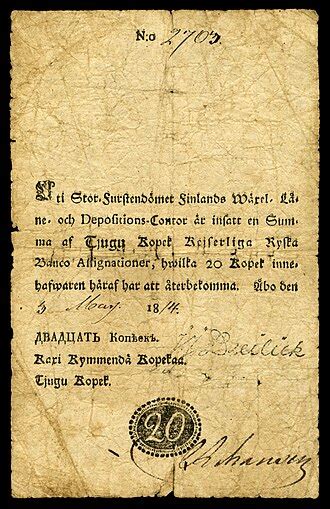 N:o 2703.
I Stor-Furstendömet Finlands Wäxel- Lå-
ne- och Depositions-Contor är insatt en Sum-
ma af Tjugu Kopek Kejserliga Ryska
Banco Assignationer, hwilka 20 Kopek inne-
hafwaren häraf har att återbekomma. Åbo den
3 May 1814.
ДВАДЦАТЬ Копѣекъ.
Kaxi Kymmendä Kopekaa.
Tjugu Kopek.
20